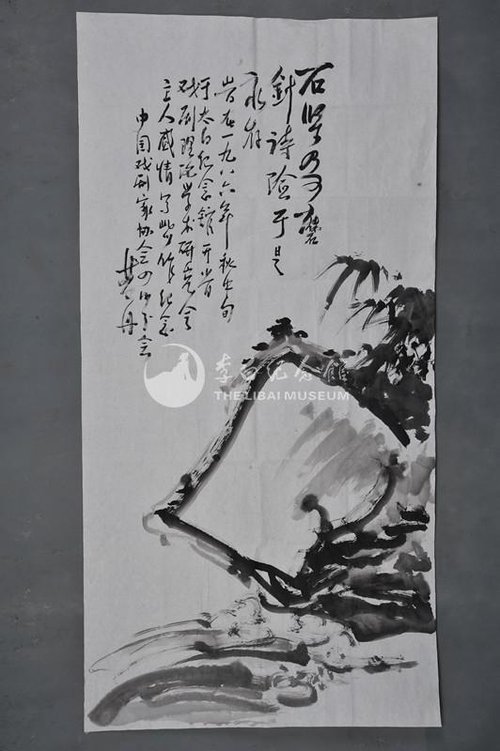 石坚磨
針诗险于是
永存
岁在一九八六年秋上旬
于太白纪念馆开省
戏剧理论学术研究会
主人感情作此纪念
中国戏剧家协会四川分会
丹
李白纪念馆
THE LIBAI MUSEUM